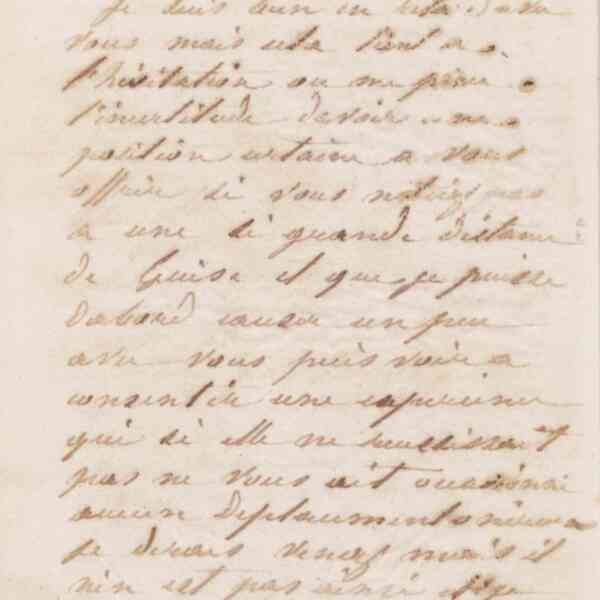 je suis bien en
vous mais cela tient a
l'hésitation ou me
l'incertitude d'avoir une
position certaine a vous
offrir si vous n'etiez pas
a une si grande distance
de Guise et que je puisse
d'abord causer un peu
avec vous puis voir a
consentir une experience
qui si elle ne reussissait
pas ne vous ait occasionné
aucun deplacement onereux
je dirais venez mais il
n'en est pas ainsi et je